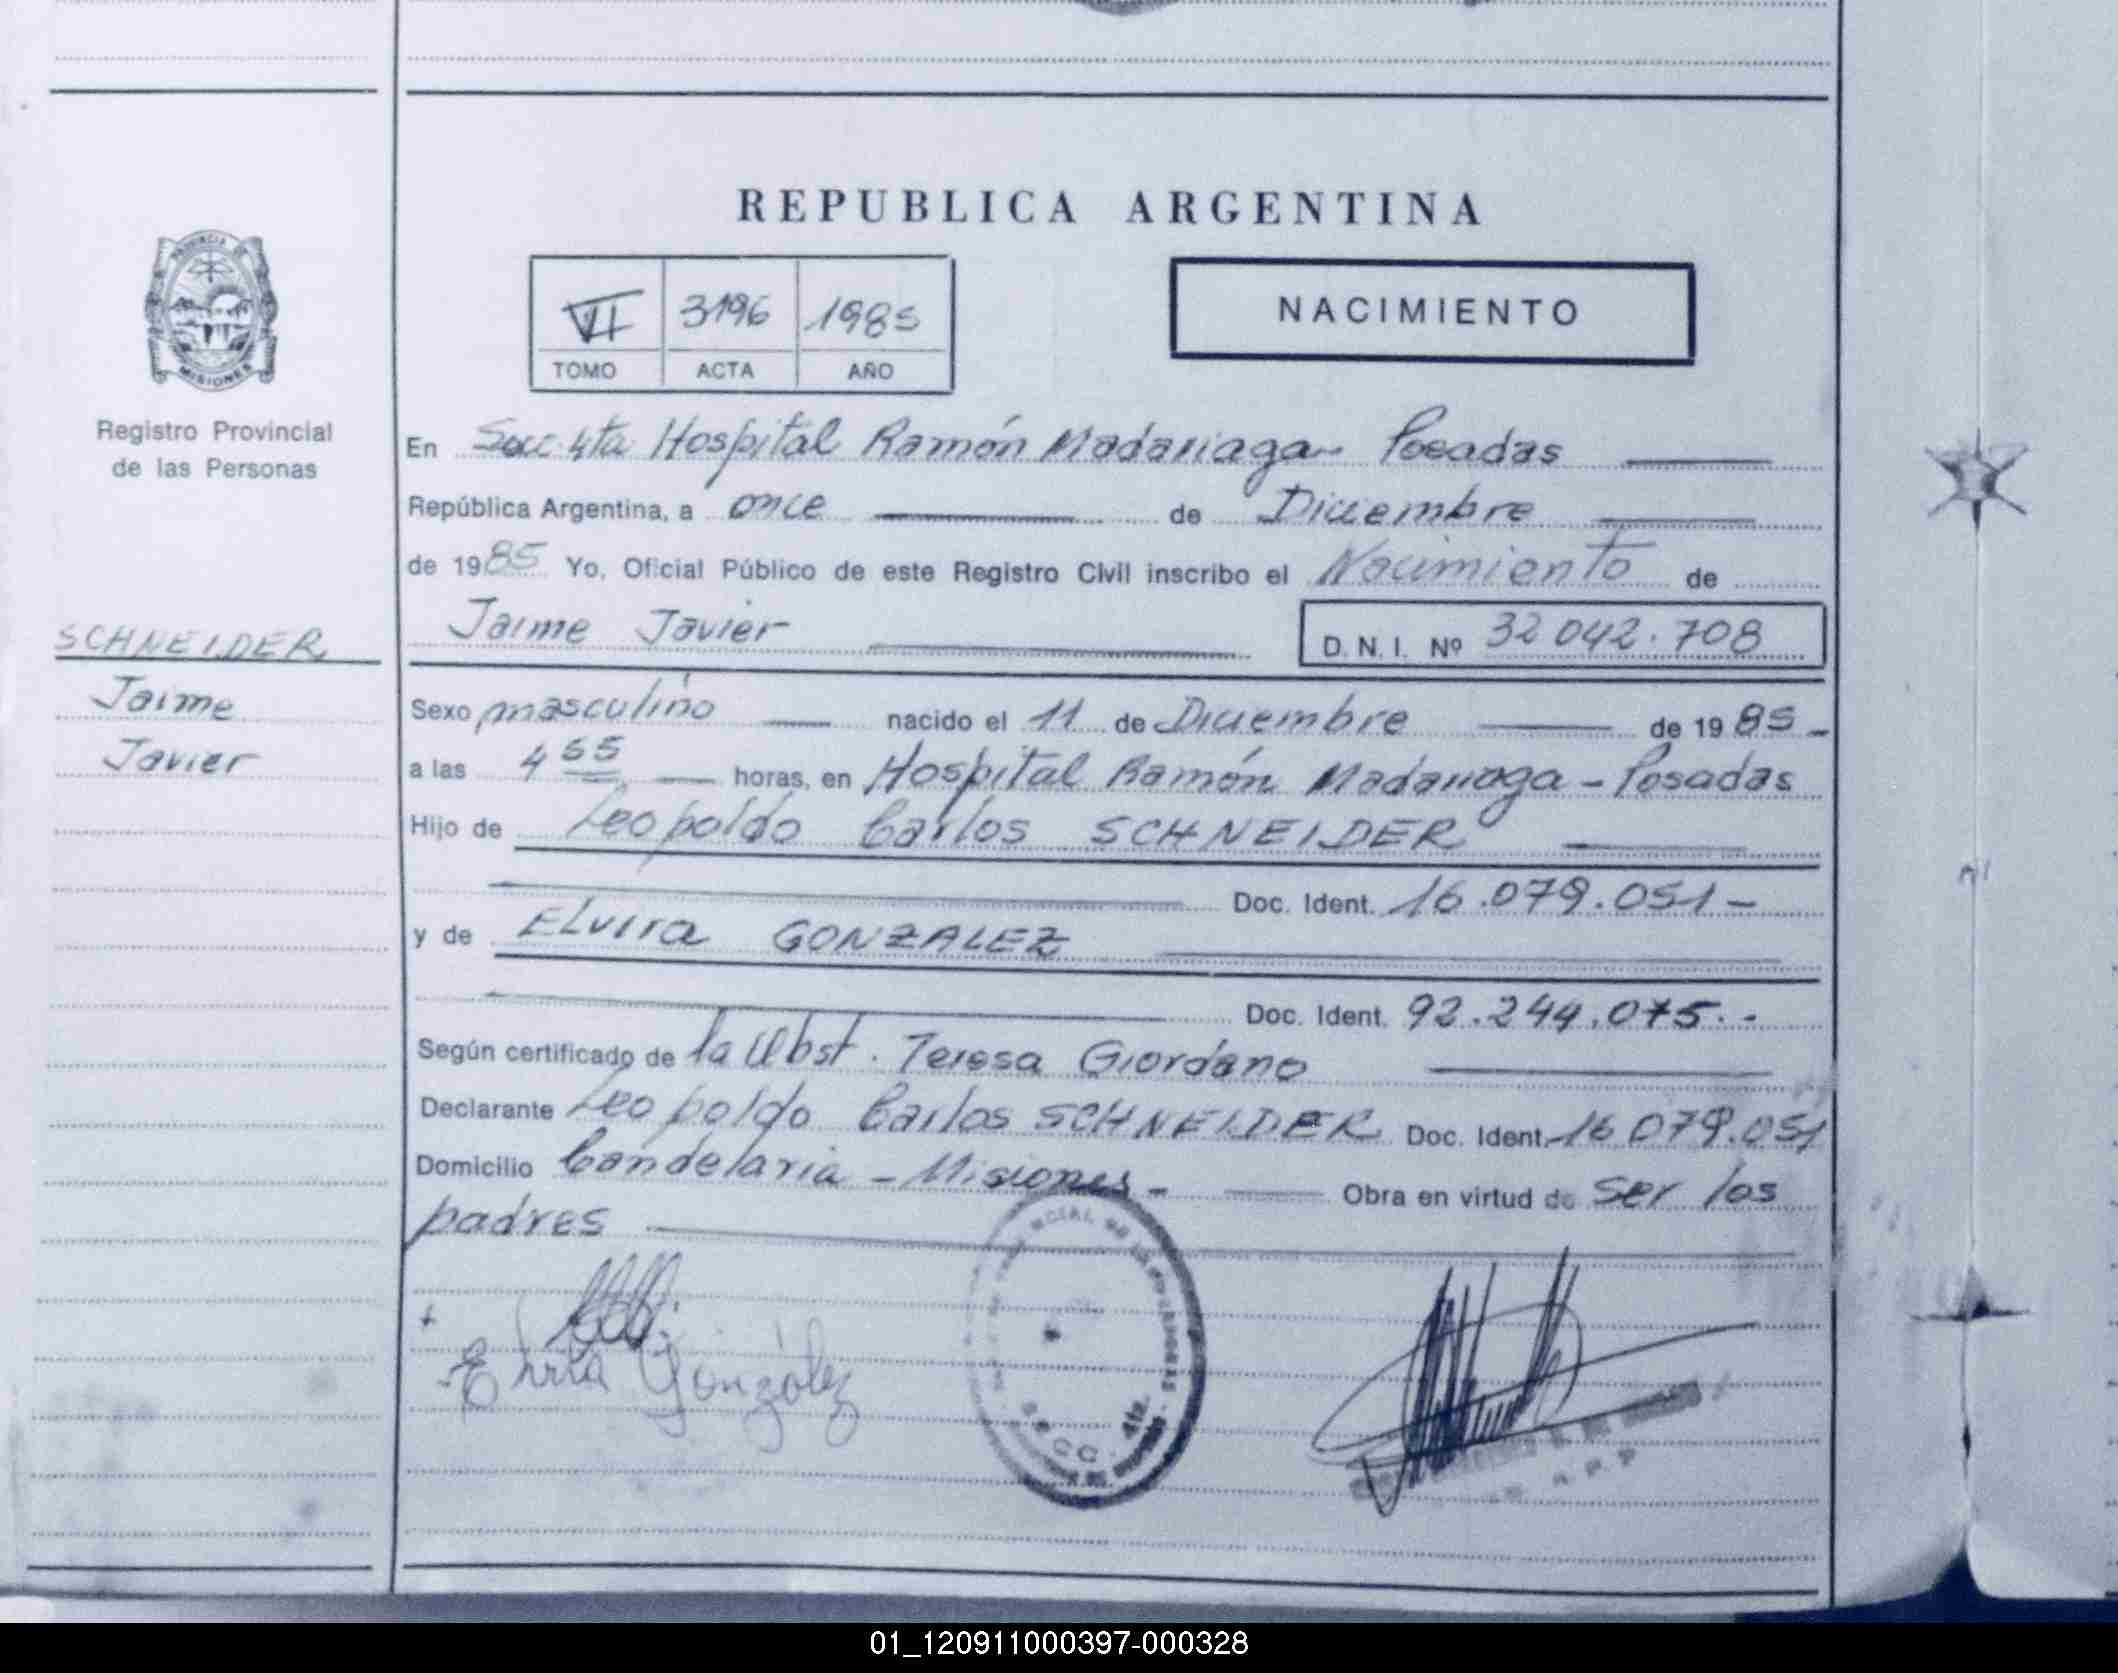 REPUBLICA ARGENTINA
PROVINCIA DE
MISIONES
Registro Provincial
de las Personas
SCHNEIDER
Jaime
Javier
VII 3196 1985
TOMO ACTA AÑO
NACIMIENTO
En Secc 4ta Hospital Ramón Madariaga - Posadas
República Argentina, a once de Diciembre
de 1985 Yo, Oficial Público de este Registro Civil inscribo el Nacimiento de
Jaime Javier D. N. I. Nº 32 042.708
Sexo masculino nacido el 11 de Diciembre de 1985-
a las 4 55 horas, en Hospital Ramón Madariaga - Posadas
Hijo de Leopoldo Carlos SCHNEIDER
Doc. Ident. 16.079.051-
y de Elvira GONZALEZ
Doc. Ident. 92.244.075.-
Según certificado de la Obst. Teresa Giordano
Declarante Leopoldo Carlos SCHNEIDER Doc. Ident. 16 079.051
Domicilio Candelaria - Misiones - Obra en virtud de ser los
padres
Elvira González
4ta.
01_120911000397-000328